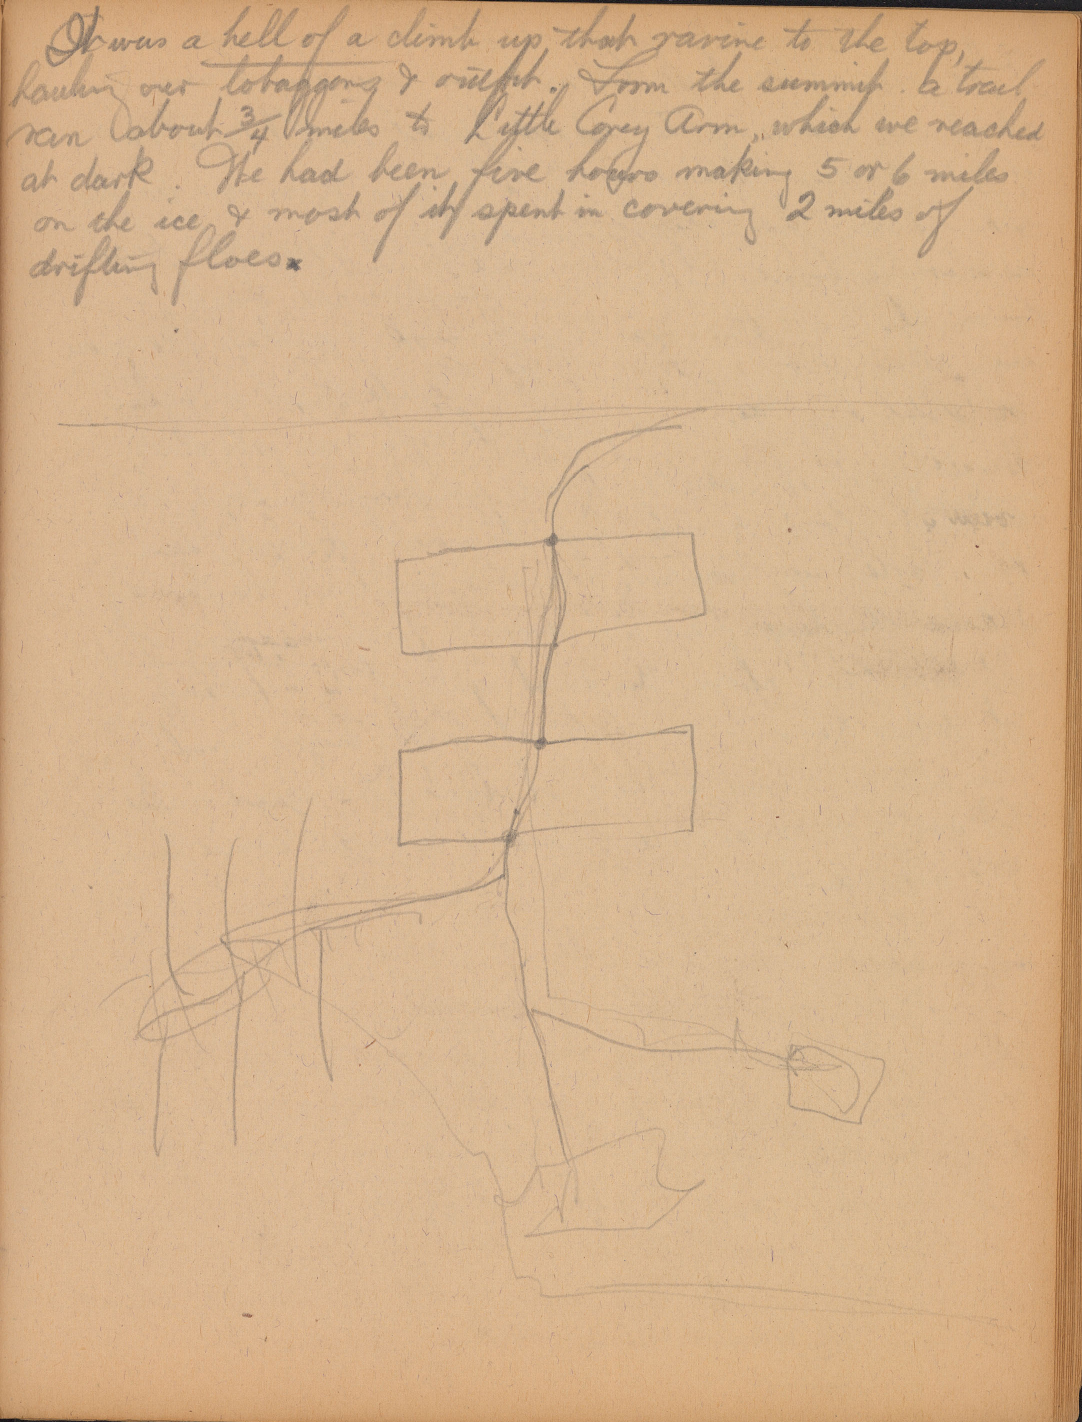 It was a hell of a climb up that ravine to the top,
hauling our tobaggans & outfit. From the summit a trail
ran about 3/4 miles to Little Corey Arm, which we reached
at dark. We had been five hours making 5 or 6 miles
on the ice & most of it spent in covering 2 miles of
drifting floes.